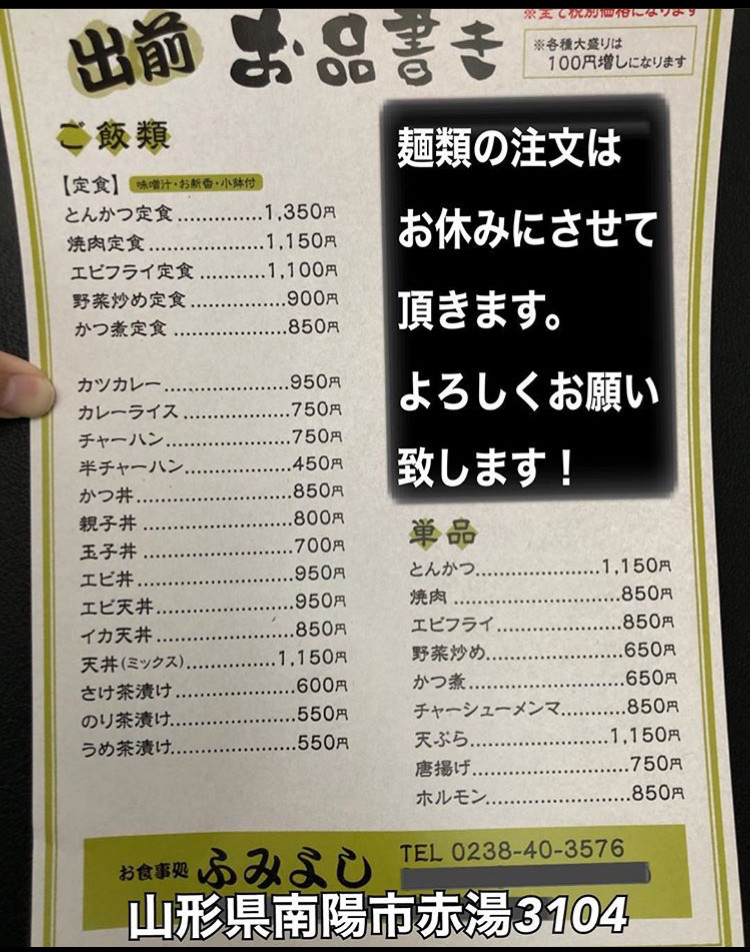 ※全て税別価格になります
出前 お品書き
※各種大盛りは
100円増しになります
ご飯類
【定食】 味噌汁・お新香・小鉢付
とんかつ定食……………1,350円
焼肉定食……………1,150円
エビフライ定食……………1,100円
野菜炒め定食……………900円
かつ煮定食……………850円
カツカレー……………950円
カレーライス……………750円
チャーハン……………750円
半チャーハン……………450円
かつ丼……………850円
親子丼……………800円
玉子丼……………700円
エビ丼……………950円
エビ天丼……………950円
イカ天丼……………850円
天丼(ミックス)……………1,150円
さけ茶漬け……………600円
のり茶漬け……………550円
うめ茶漬け……………550円
麺類の注文は
お休みにさせて
頂きます。
よろしくお願い
致します！
単品
とんかつ……………1,150円
焼肉……………850円
エビフライ……………850円
野菜炒め……………650円
かつ煮……………650円
チャーシューメンマ……………850円
天ぷら……………1,150円
唐揚げ……………750円
ホルモン……………850円
お食事処 ふみよし
TEL 0238-40-3576
山形県南陽市赤湯3104